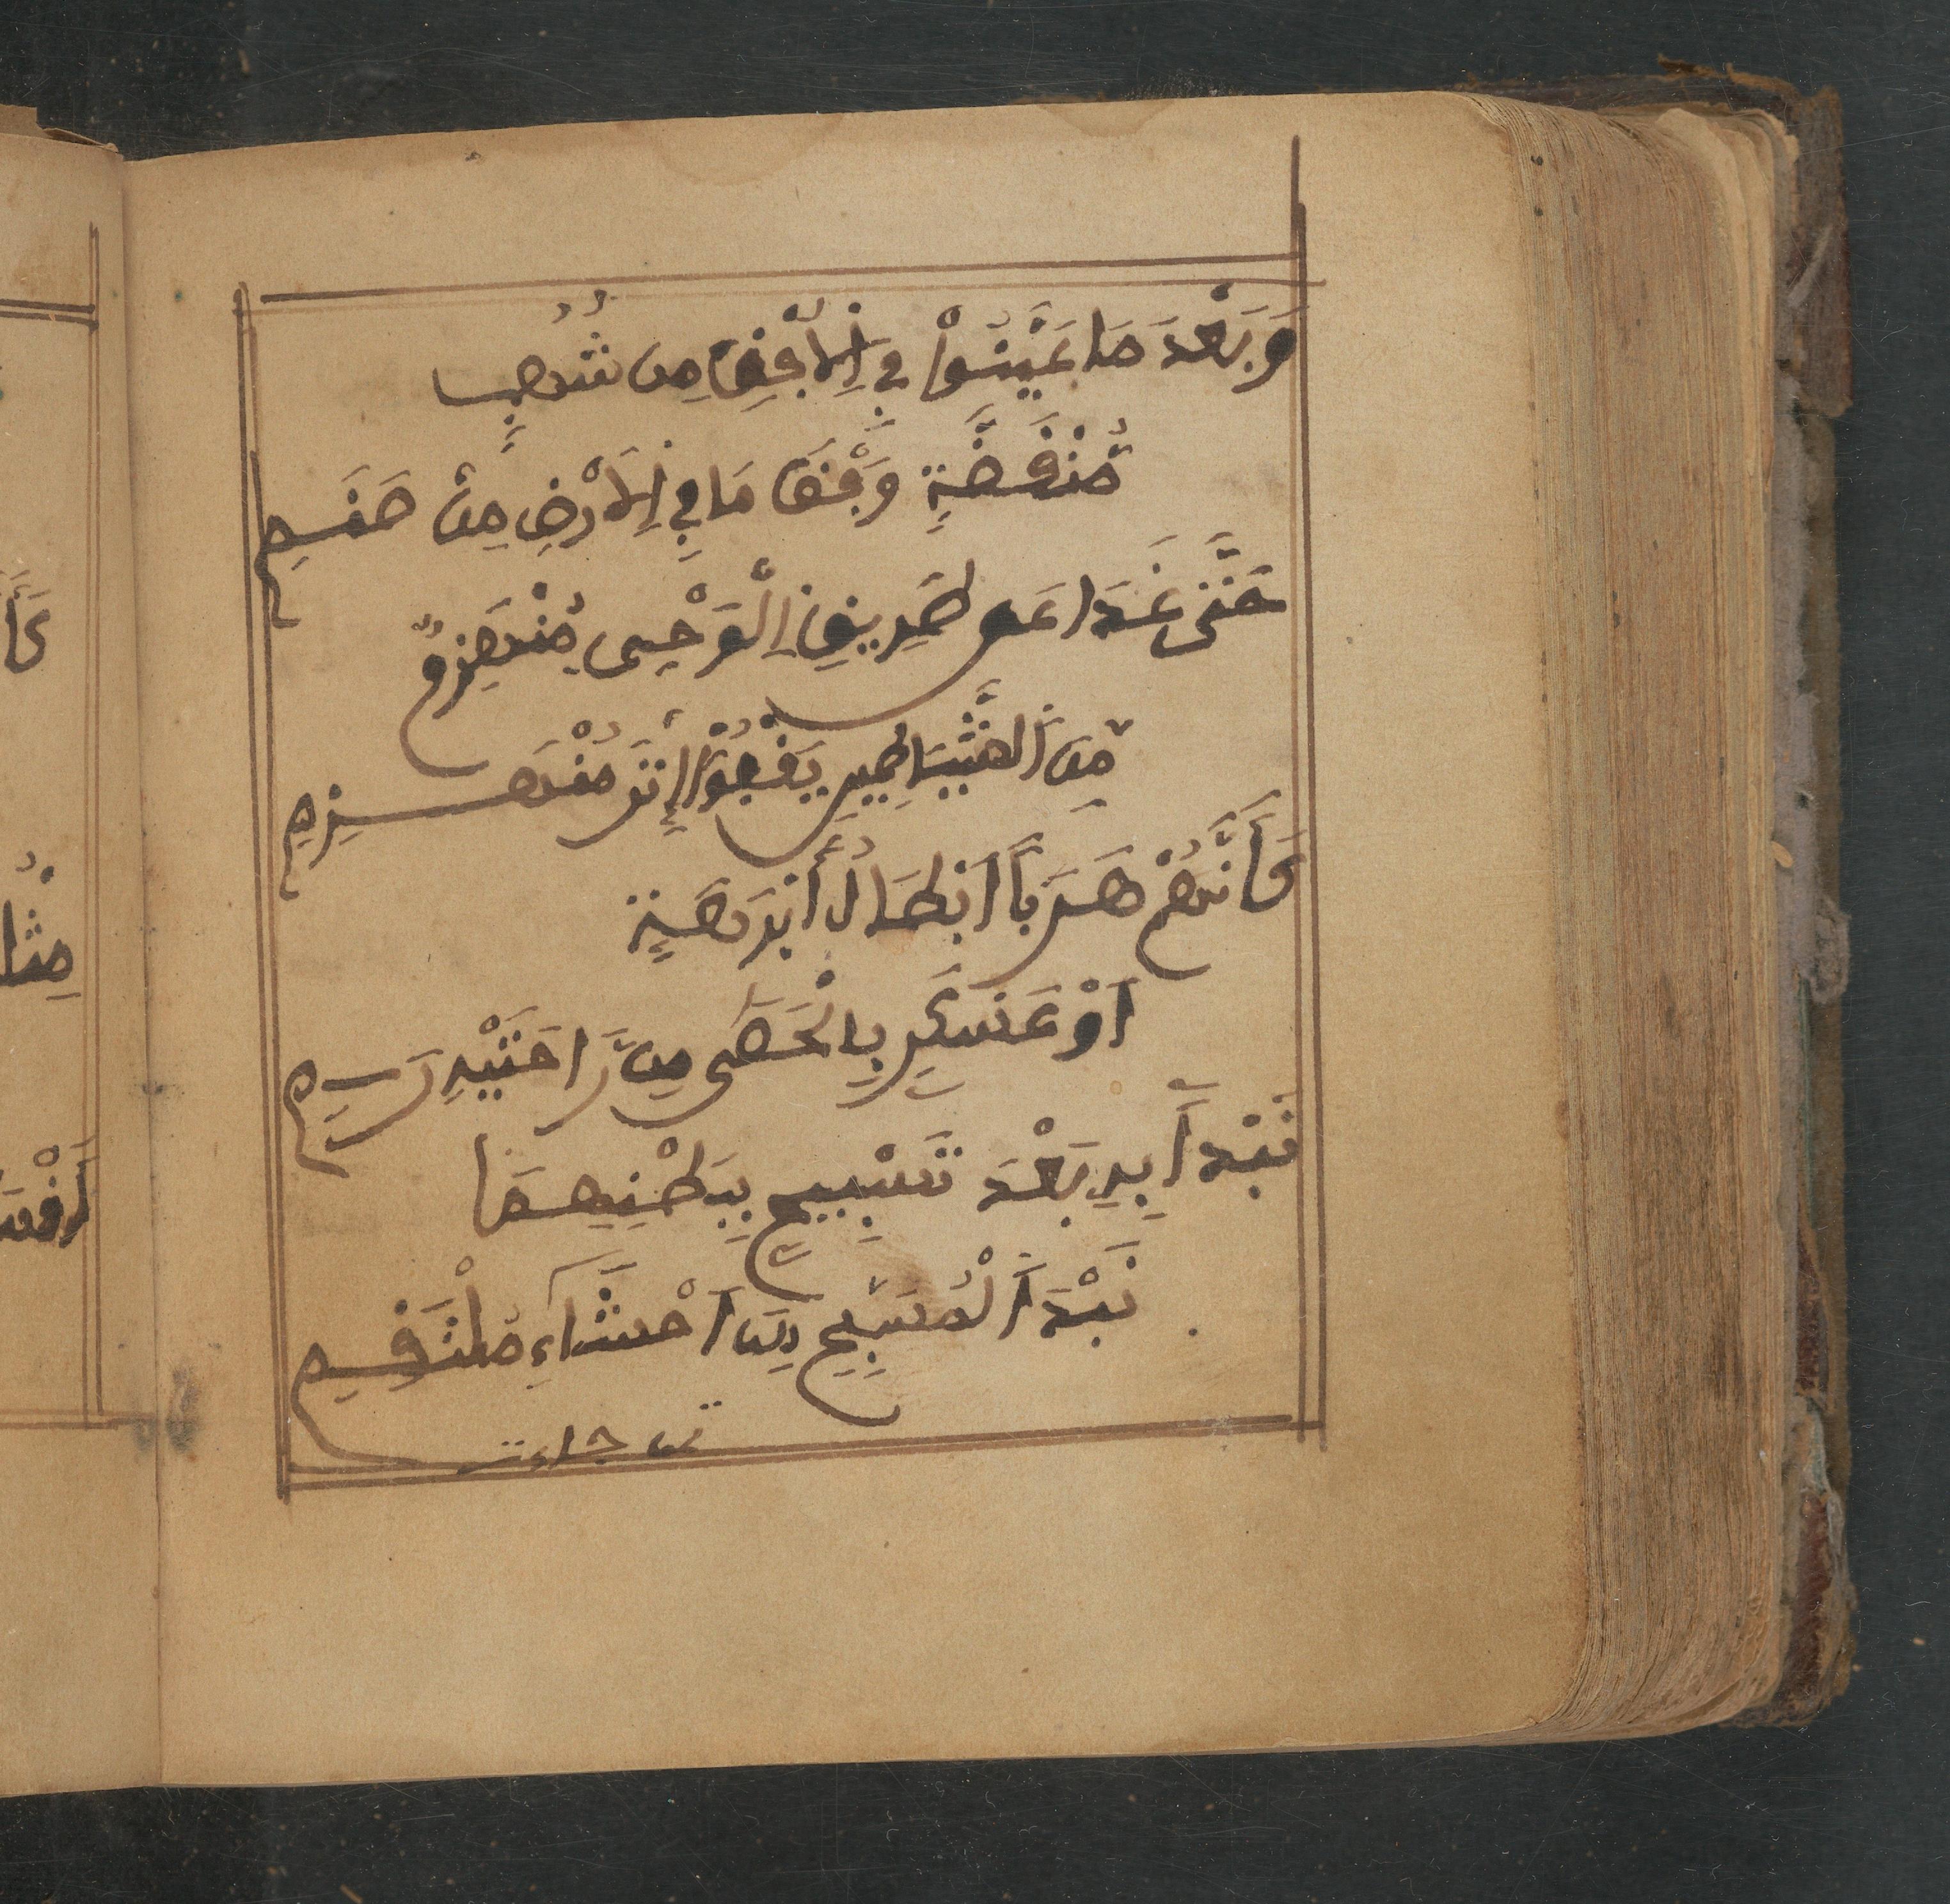 وَبَعْدَ مَا عَايَنُوا فِي اِلْأُفْقِ مِن شُهُبٍ
مُنْقَضَّةٍ وَفْقَ مَا فِي اِلَارْضِ مِنْ صَنَمِ
حَتَّى غَدَا عَن طَرِيقِ اِلْوَحْيِ مُنْهَزِمٌ
مِنَ اَلشَّيَاطِينِ يَقْفُوا إِثْرَ مُنْهَزِمِ
كَأَنَّهُمْ هَرَباً اَبْطَالُ أَبْرَهَةٍ
اَوْ عَسْكَرٍ بِالْحَصَى مِن رَّاحَتَيْهِ رَمِ
نَبْذاً بِهِ بَعْدَ تَسْبِيحٍ بِبَطْنِهِمَا
نَبْذَ اَلْمُسَبِّحِ مِنَ اَحْشَاءِ مُلْتَقِمِ
جاءت
كَأَ
أَقْسَ